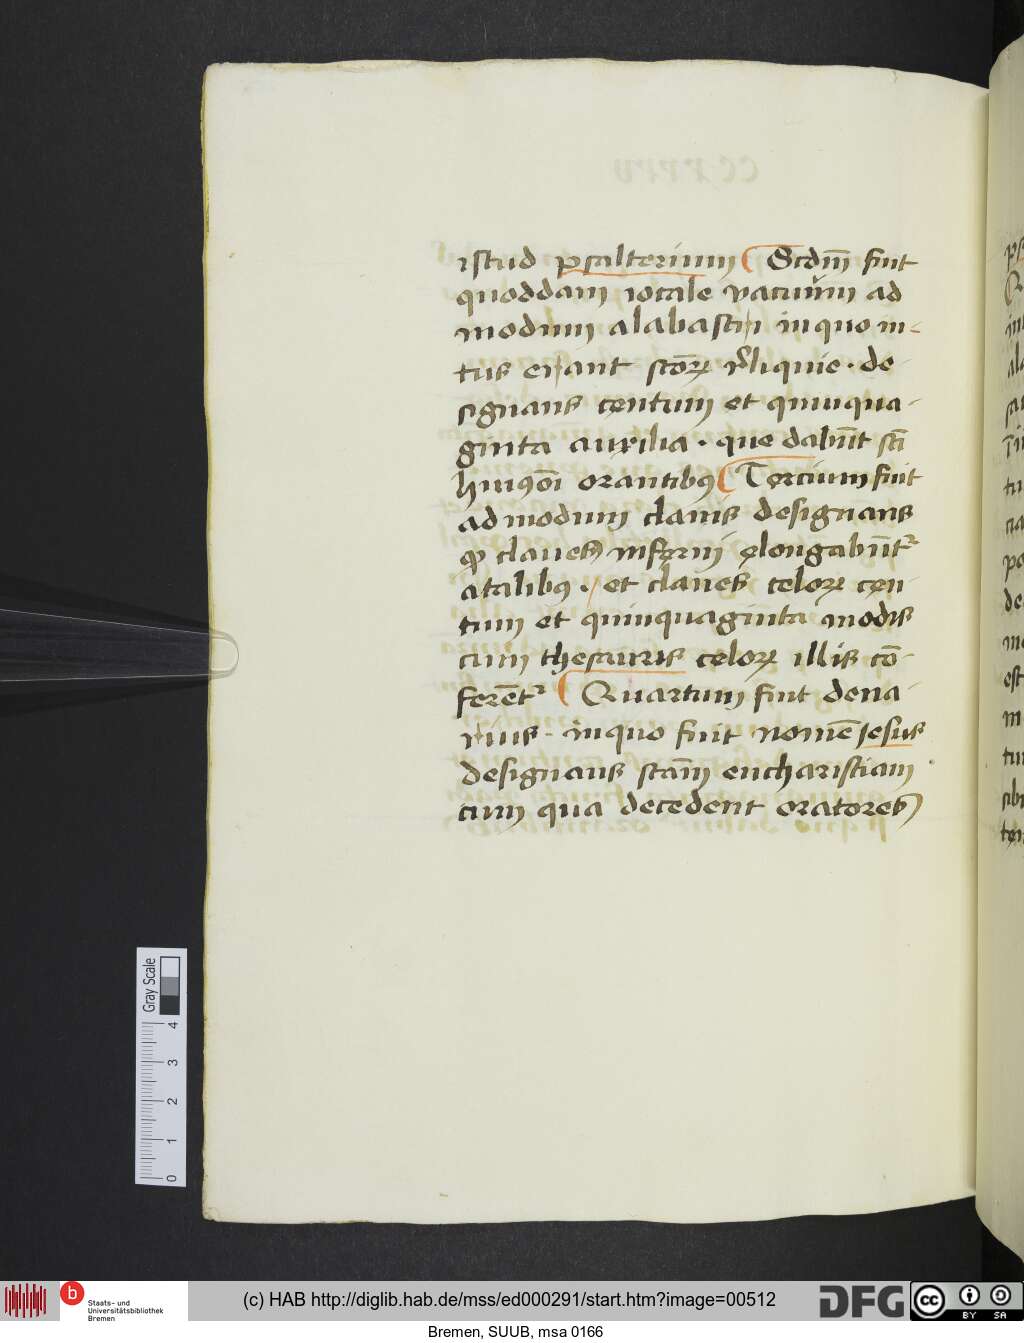 istud psalterium Scdm̄ fuit
quoddam iocale vacuum ad
modum alabastri in quo in-
tus erant sctōꝝ reliquie · de-
signans centum et quinqua-
ginta auxilia · que dabūt scti
huiꝰmōi orantibꝰ Tercium fuit
ad modum clauis designans
ꝙ claues inferni elongabūtr
a talibꝰ · et claues celoꝝ cen
tum et quinquaginta modis
cum thesauris celoꝝ illis cō-
ferētr Quartum fuit dena-
rius · in quo fuit nomē Jesus
designans sctām eucharistiam
cum qua decedent oratores
Gray Scale
4
3
2
1
0
b Staats- und
Universitätsbibliothek
Bremen
(c) HAB http://diglib.hab.de/mss/ed000291/start.htm?image=00512
DFG
cc BY SA
Bremen, SUUB, msa 0166